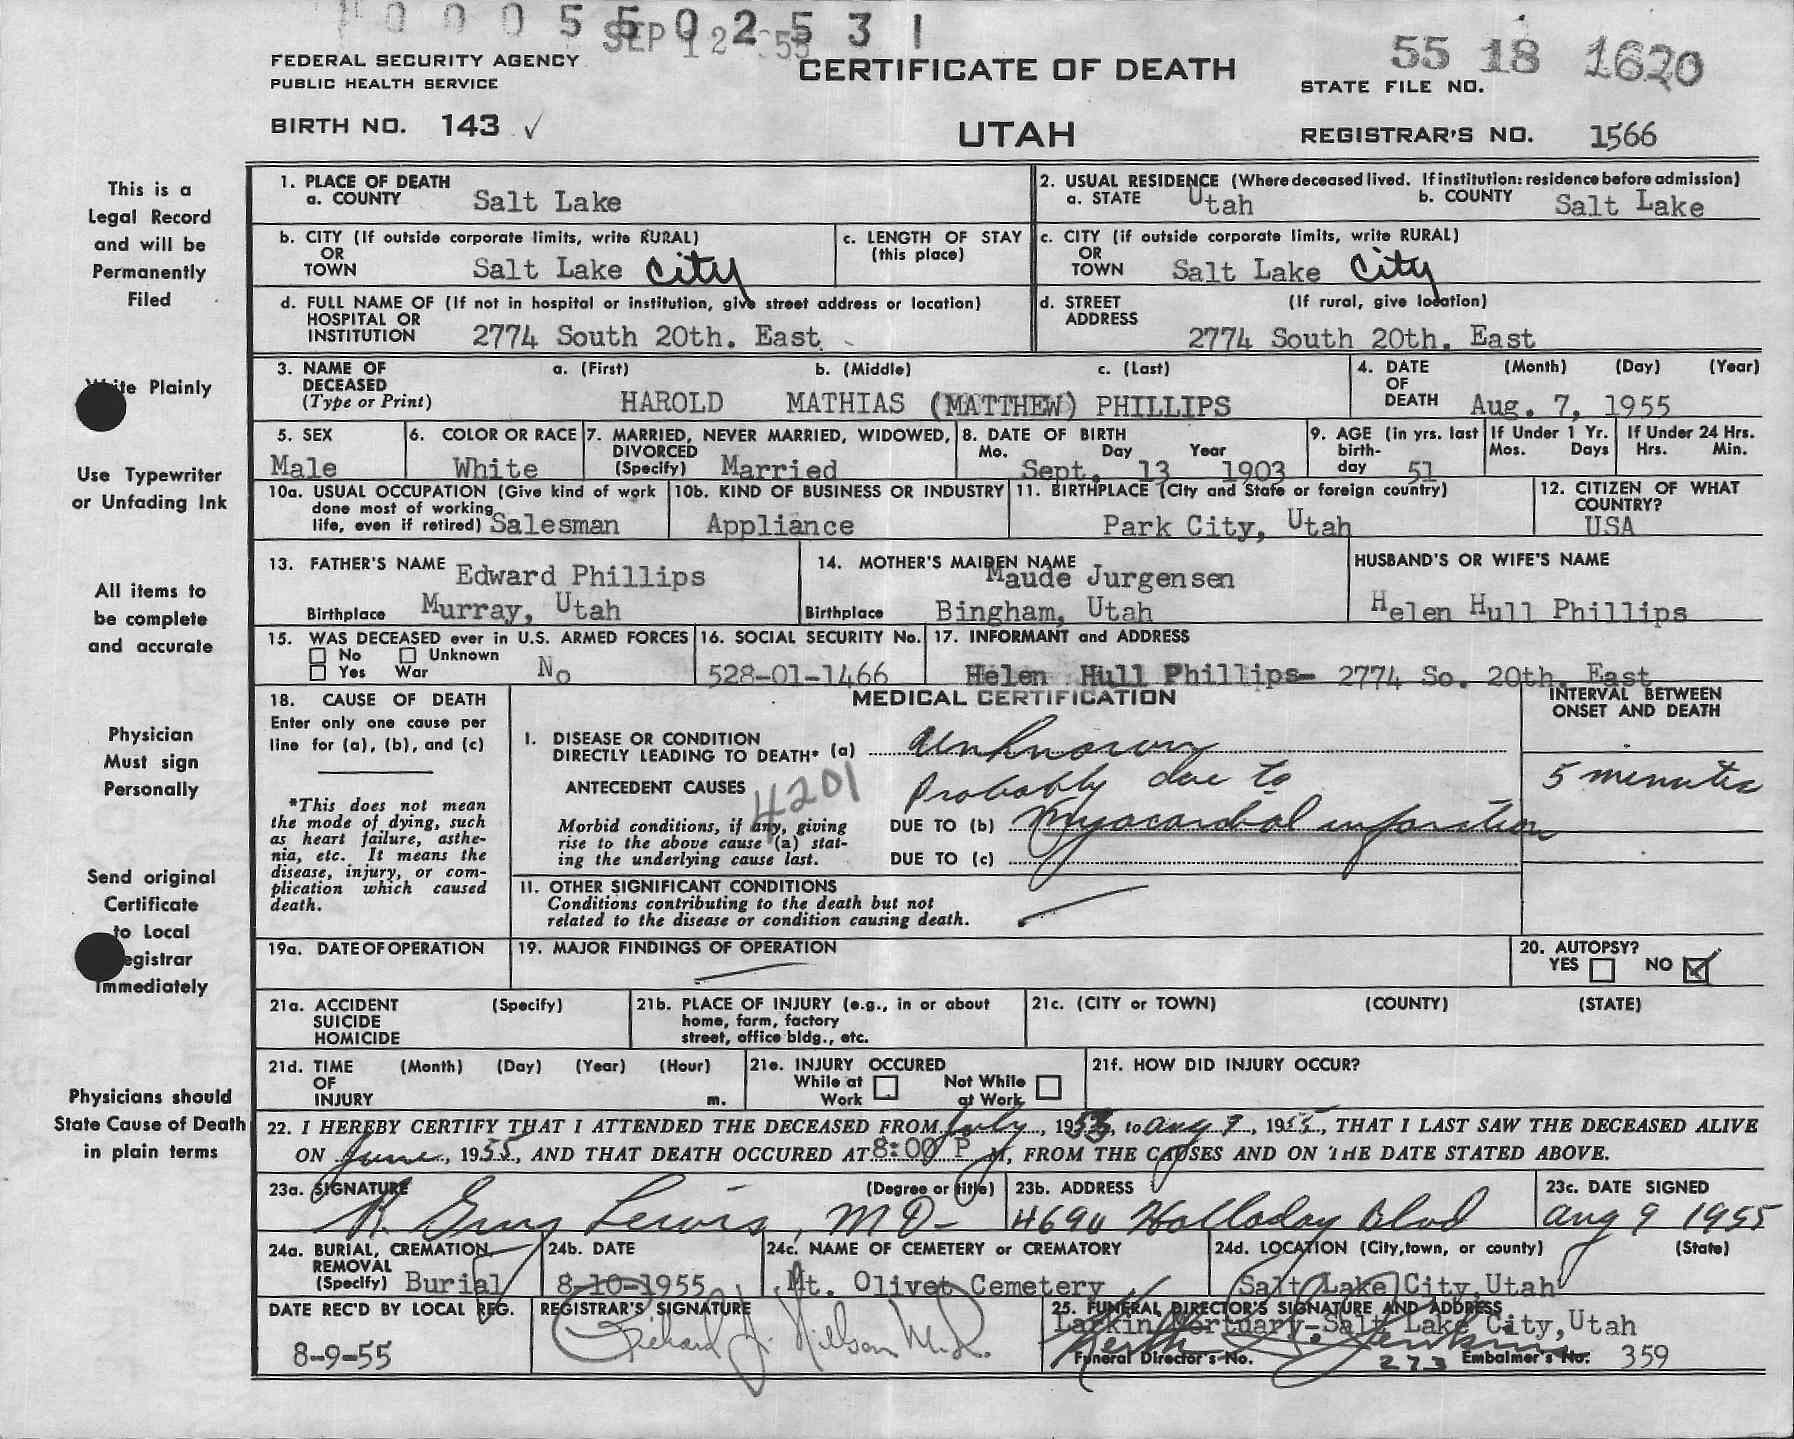 0 0 0 5 5 0 2 5 3 1
SEP 12 '55
FEDERAL SECURITY AGENCY
PUBLIC HEALTH SERVICE
CERTIFICATE OF DEATH
55 18 1620
STATE FILE NO.
BIRTH NO. 143 ✓
UTAH
REGISTRAR'S NO. 1566
This is a
Legal Record
and will be
Permanently
Filed
Plainly
Use Typewriter
or Unfading Ink
All items to
be complete
and accurate
Physician
Must sign
Personally
Send original
Certificate
to Local
egistrar
Immediately
Physicians should
State Cause of Death
in plain terms
1. PLACE OF DEATH
a. COUNTY Salt Lake
2. USUAL RESIDENCE (Where deceased lived. If institution: residence before admission)
a. STATE Utah b. COUNTY Salt Lake
b. CITY (If outside corporate limits, write RURAL)
OR
TOWN Salt Lake City
c. LENGTH OF STAY
(this place)
c. CITY (if outside corporate limits, write RURAL)
OR
TOWN Salt Lake City
d. FULL NAME OF (If not in hospital or institution, give street address or location)
HOSPITAL OR
INSTITUTION 2774 South 20th. East
d. STREET (If rural, give location)
ADDRESS
2774 South 20th. East
3. NAME OF a. (First) b. (Middle) c. (Last)
DECEASED
(Type or Print) HAROLD MATHIAS (MATTHEW) PHILLIPS
4. DATE (Month) (Day) (Year)
OF
DEATH Aug. 7, 1955
5. SEX
Male
6. COLOR OR RACE
White
7. MARRIED, NEVER MARRIED, WIDOWED,
DIVORCED
(Specify) Married
8. DATE OF BIRTH
Mo. Day Year
Sept. 13 1903
9. AGE (in yrs. last
birth-
day 51
If Under 1 Yr.
Mos. Days
If Under 24 Hrs.
Hrs. Min.
10a. USUAL OCCUPATION (Give kind of work
done most of working
life, even if retired) Salesman
10b. KIND OF BUSINESS OR INDUSTRY
Appliance
11. BIRTHPLACE (City and State or foreign country)
Park City, Utah
12. CITIZEN OF WHAT
COUNTRY?
USA
13. FATHER'S NAME Edward Phillips
Birthplace Murray, Utah
14. MOTHER'S MAIDEN NAME
Maude Jurgensen
Birthplace Bingham, Utah
HUSBAND'S OR WIFE'S NAME
Helen Hull Phillips
15. WAS DECEASED ever in U.S. ARMED FORCES
No Unknown
Yes War No
16. SOCIAL SECURITY No.
528-01-1466
17. INFORMANT and ADDRESS
Helen Hull Phillips- 2774 So. 20th. East
18. CAUSE OF DEATH
Enter only one cause per
line for (a), (b), and (c)
*This does not mean
the mode of dying, such
as heart failure, asthe-
nia, etc. It means the
disease, injury, or com-
plication which caused
death.
MEDICAL CERTIFICATION
INTERVAL BETWEEN
ONSET AND DEATH
I. DISEASE OR CONDITION
DIRECTLY LEADING TO DEATH* (a) Unknown
ANTECEDENT CAUSES 4201 Probably due to 5 minutes
Morbid conditions, if any, giving
rise to the above cause (a) stat-
ing the underlying cause last.
DUE TO (b) Myocardial infarction
DUE TO (c)
11. OTHER SIGNIFICANT CONDITIONS
Conditions contributing to the death but not
related to the disease or condition causing death.
19a. DATE OF OPERATION
19. MAJOR FINDINGS OF OPERATION
20. AUTOPSY?
YES NO
21a. ACCIDENT (Specify)
SUICIDE
HOMICIDE
21b. PLACE OF INJURY (e.g., in or about
home, farm, factory
street, office bldg., etc.
21c. (CITY or TOWN) (COUNTY) (STATE)
21d. TIME (Month) (Day) (Year) (Hour)
OF
INJURY m.
21e. INJURY OCCURED
While at Work
Not While at Work
21f. HOW DID INJURY OCCUR?
22. I HEREBY CERTIFY THAT I ATTENDED THE DECEASED FROM July, 1953, to Aug 7, 1955, THAT I LAST SAW THE DECEASED ALIVE
ON June, 1955, AND THAT DEATH OCCURED AT 8:00 P M, FROM THE CAUSES AND ON THE DATE STATED ABOVE.
23a. SIGNATURE (Degree or title)
Lewis, MD-
23b. ADDRESS
4690 Holladay Blvd
23c. DATE SIGNED
Aug 9 1955
24a. BURIAL, CREMATION,
REMOVAL
(Specify) Burial
24b. DATE
8-10-1955
24c. NAME OF CEMETERY or CREMATORY
Mt. Olivet Cemetery
24d. LOCATION (City, town, or county) (State)
Salt Lake City, Utah
DATE REC'D BY LOCAL REG.
8-9-55
REGISTRAR'S SIGNATURE
Richard J. Nilson M.D.
25. FUNERAL DIRECTOR'S SIGNATURE AND ADDRESS
Larkin Mortuary-Salt Lake City, Utah
Funeral Director's No. 273 Embalmer's No. 359